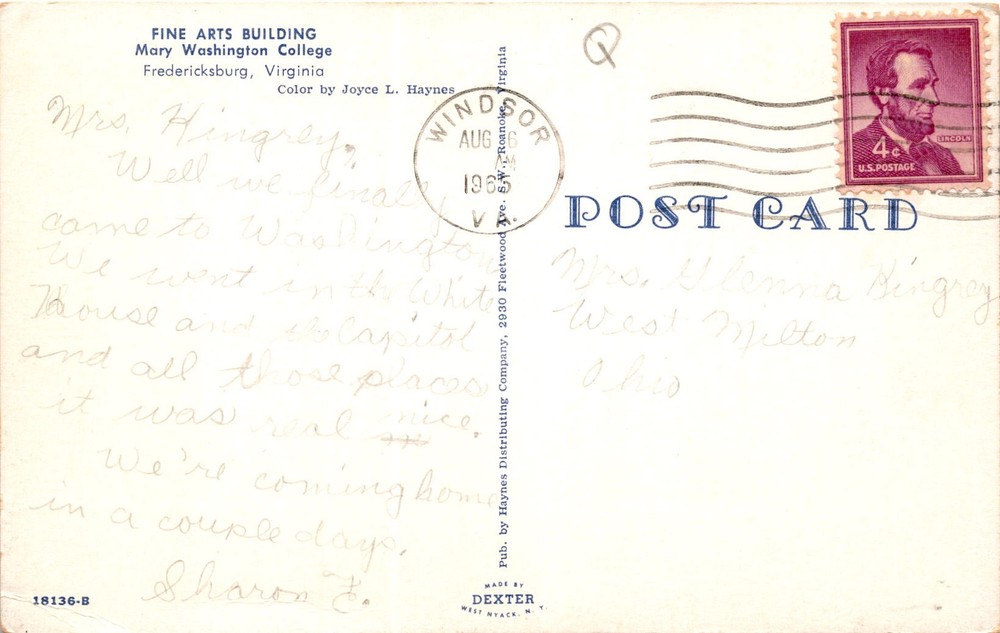 FINE ARTS BUILDING
Mary Washington College
Fredericksburg, Virginia
Color by Joyce L. Haynes
Mrs. Kingrey,
Well we finally
came to Washington
We went in the White
House and the Capitol
and all those places
it was real nice.
We're coming home
in a couple days.
Sharon F.
18136-B
Pub. by Haynes Distributing Company, 2930 Fleetwood Ave. S.W., Roanoke, Virginia
MADE BY
DEXTER
WEST NYACK, N. Y.
Q
WINDSOR
AUG 6
AM
1965
VA.
LINCOLN
4¢
U.S. POSTAGE
POST CARD
Mrs. Glenna Kingrey
West Milton
Ohio